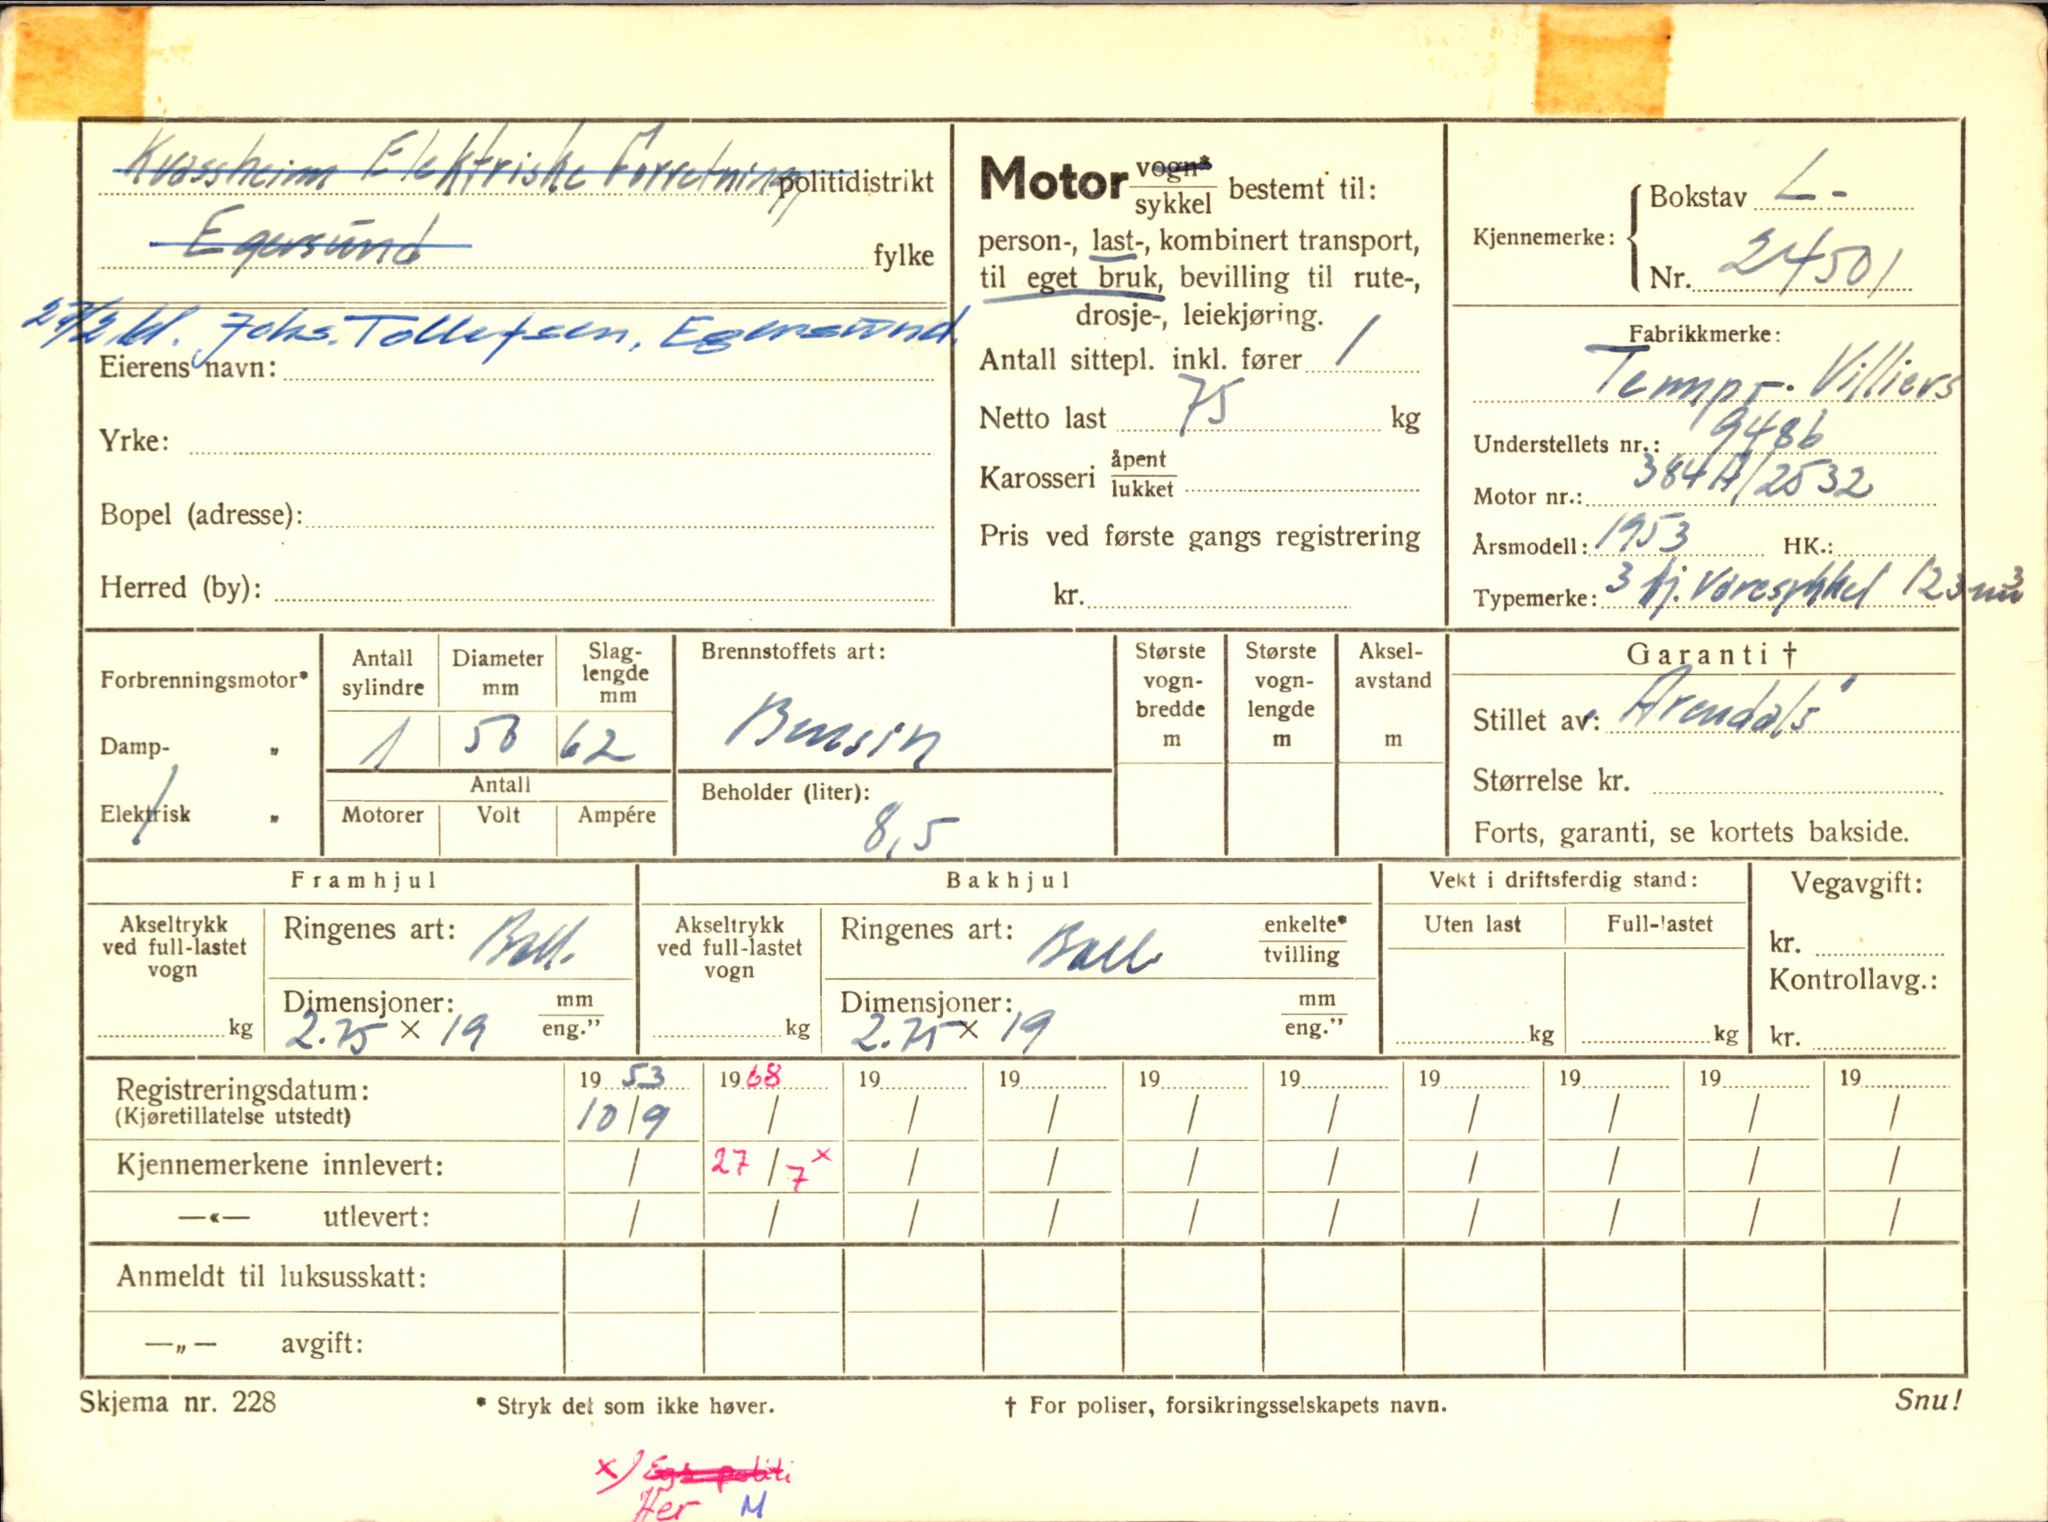 Kvassheim Elektriske Forretning politidistrikt
Egersund fylke
27/2 bl. Johs. Tollefsen, Egersund.
Eierens navn:
Yrke:
Bopel (adresse):
Herred (by):
Motor vogn* / sykkel bestemt til:
person-, last-, kombinert transport,
til eget bruk, bevilling til rute-,
drosje-, leiekjøring.
Antall sittepl. inkl. fører 1
Netto last 75 kg
Karosseri åpent / lukket
Pris ved første gangs registrering
kr.
Kjennemerke: Bokstav L-
Nr. 24501
Fabrikkmerke:
Tempo - Villiers
Understellets nr.: 948b
Motor nr.: 384A/2532
Årsmodell: 1953 HK.:
Typemerke: 3 hj. Varesykkel 123 m³
Forbrenningsmotor*
Damp- „
Elektrisk „
Antall sylindre
Diameter mm
Slag-lengde mm
1 50 62
Antall
Motorer Volt Ampére
Brennstoffets art:
Bensin
Beholder (liter):
8,5
Største vogn-bredde m
Største vogn-lengde m
Aksel-avstand m
Garanti †
Stillet av: Arendals
Størrelse kr.
Forts, garanti, se kortets bakside.
Framhjul
Akseltrykk ved full-lastet vogn
kg
Ringenes art: Ball.
Dimensjoner: mm / eng.”
2.75 × 19
Bakhjul
Akseltrykk ved full-lastet vogn
kg
Ringenes art: Ball. enkelte* / tvilling
Dimensjoner: mm / eng.”
2.75 × 19
Vekt i driftsferdig stand:
Uten last Full-lastet
kg kg
Vegavgift:
kr.
Kontrollavg.:
kr.
Registreringsdatum: 19 53 19 68 19 19 19 19 19 19 19 19
(Kjøretillatelse utstedt) 10/9 / / / / / / / / /
Kjennemerkene innlevert: / 27/7 x / / / / / / / /
—«— utlevert: / / / / / / / / / /
Anmeldt til luksusskatt:
—„— avgift:
Skjema nr. 228 * Stryk det som ikke høver. † For poliser, forsikringsselskapets navn. Snu!
x) Egs. politi
Her M